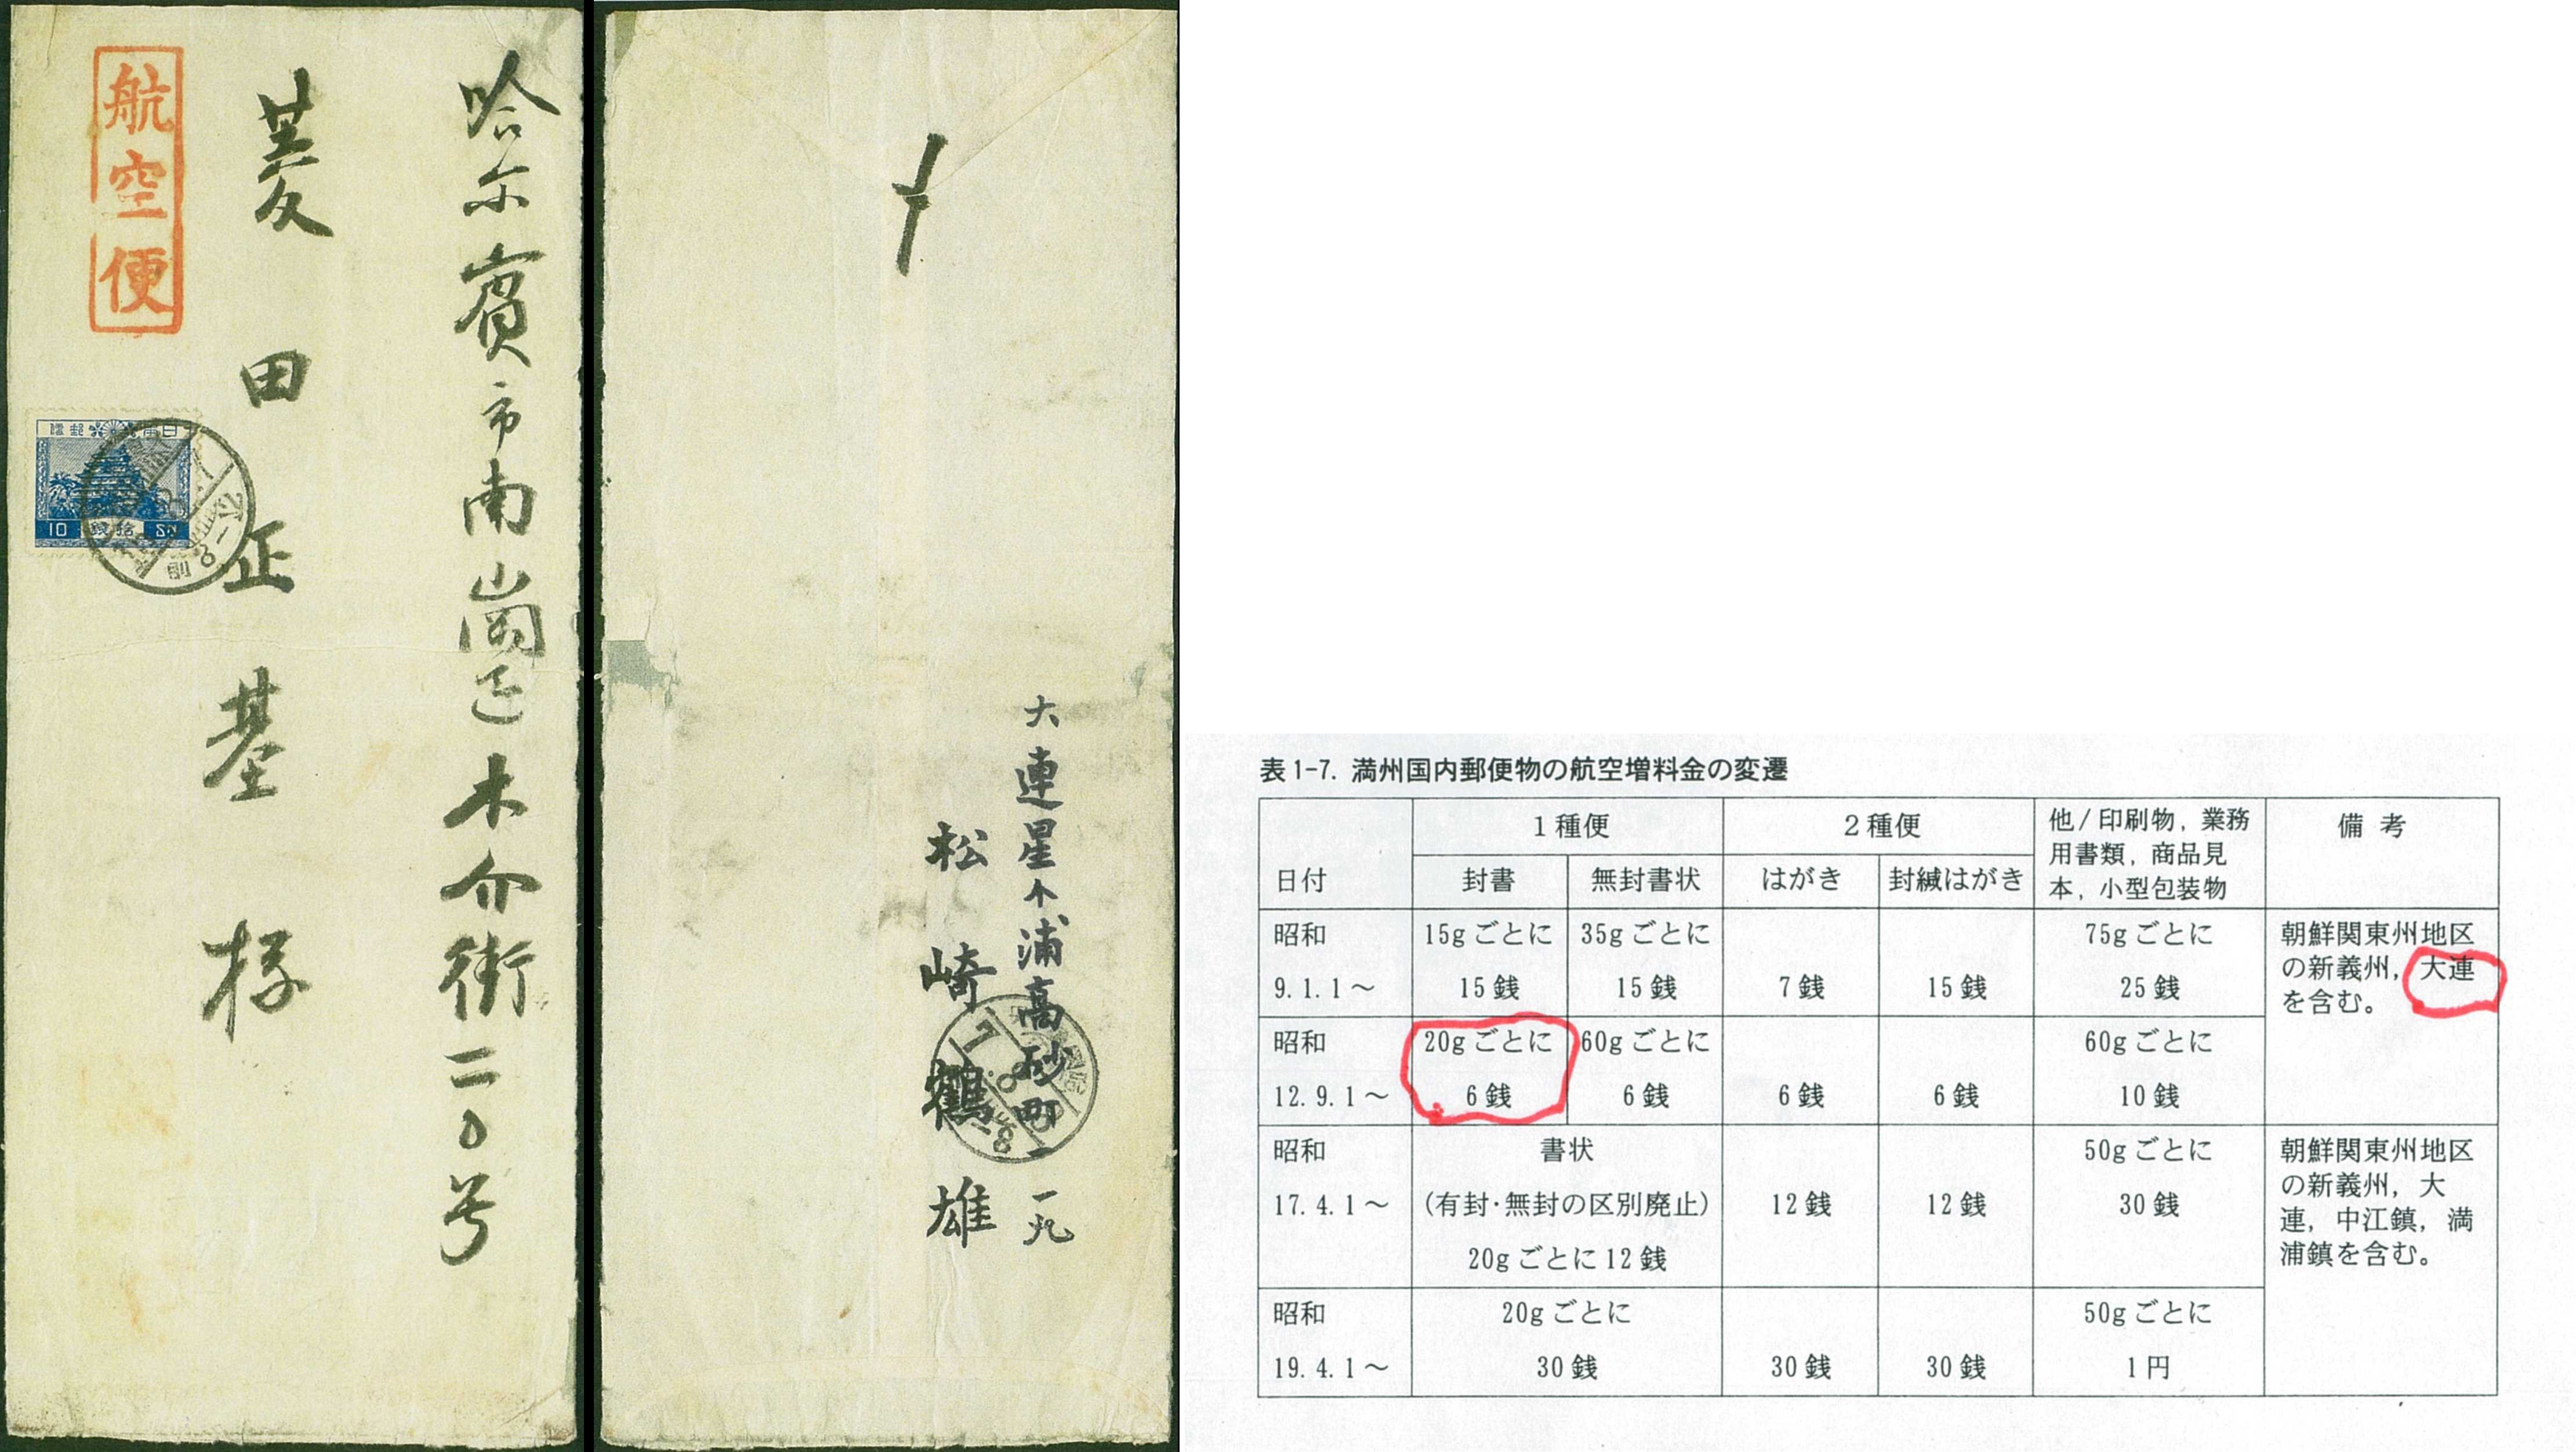 哈尔賓市南崗区木介街二〇号
菱田正基様
航空便
日本 郵便
10 銭拾 SN
大連星ケ浦高砂町一九
松崎鶴雄
表1-7. 満州国内郵便物の航空増料金の変遷
日付 1種便 2種便 他/印刷物, 業務用書類, 商品見本, 小型包装物 備考
封書 無封書状 はがき 封緘はがき
昭和 9.1.1～ 15gごとに 15銭 35gごとに 15銭 7銭 15銭 75gごとに 25銭 朝鮮関東州地区の新義州, 大連を含む。
昭和 12.9.1～ 20gごとに 6銭 60gごとに 6銭 6銭 6銭 60gごとに 10銭
昭和 17.4.1～ 書状 (有封·無封の区別廃止) 20gごとに12銭 12銭 12銭 50gごとに 30銭 朝鮮関東州地区の新義州, 大連, 中江鎮, 満浦鎮を含む。
昭和 19.4.1～ 20gごとに 30銭 30銭 30銭 50gごとに 1円